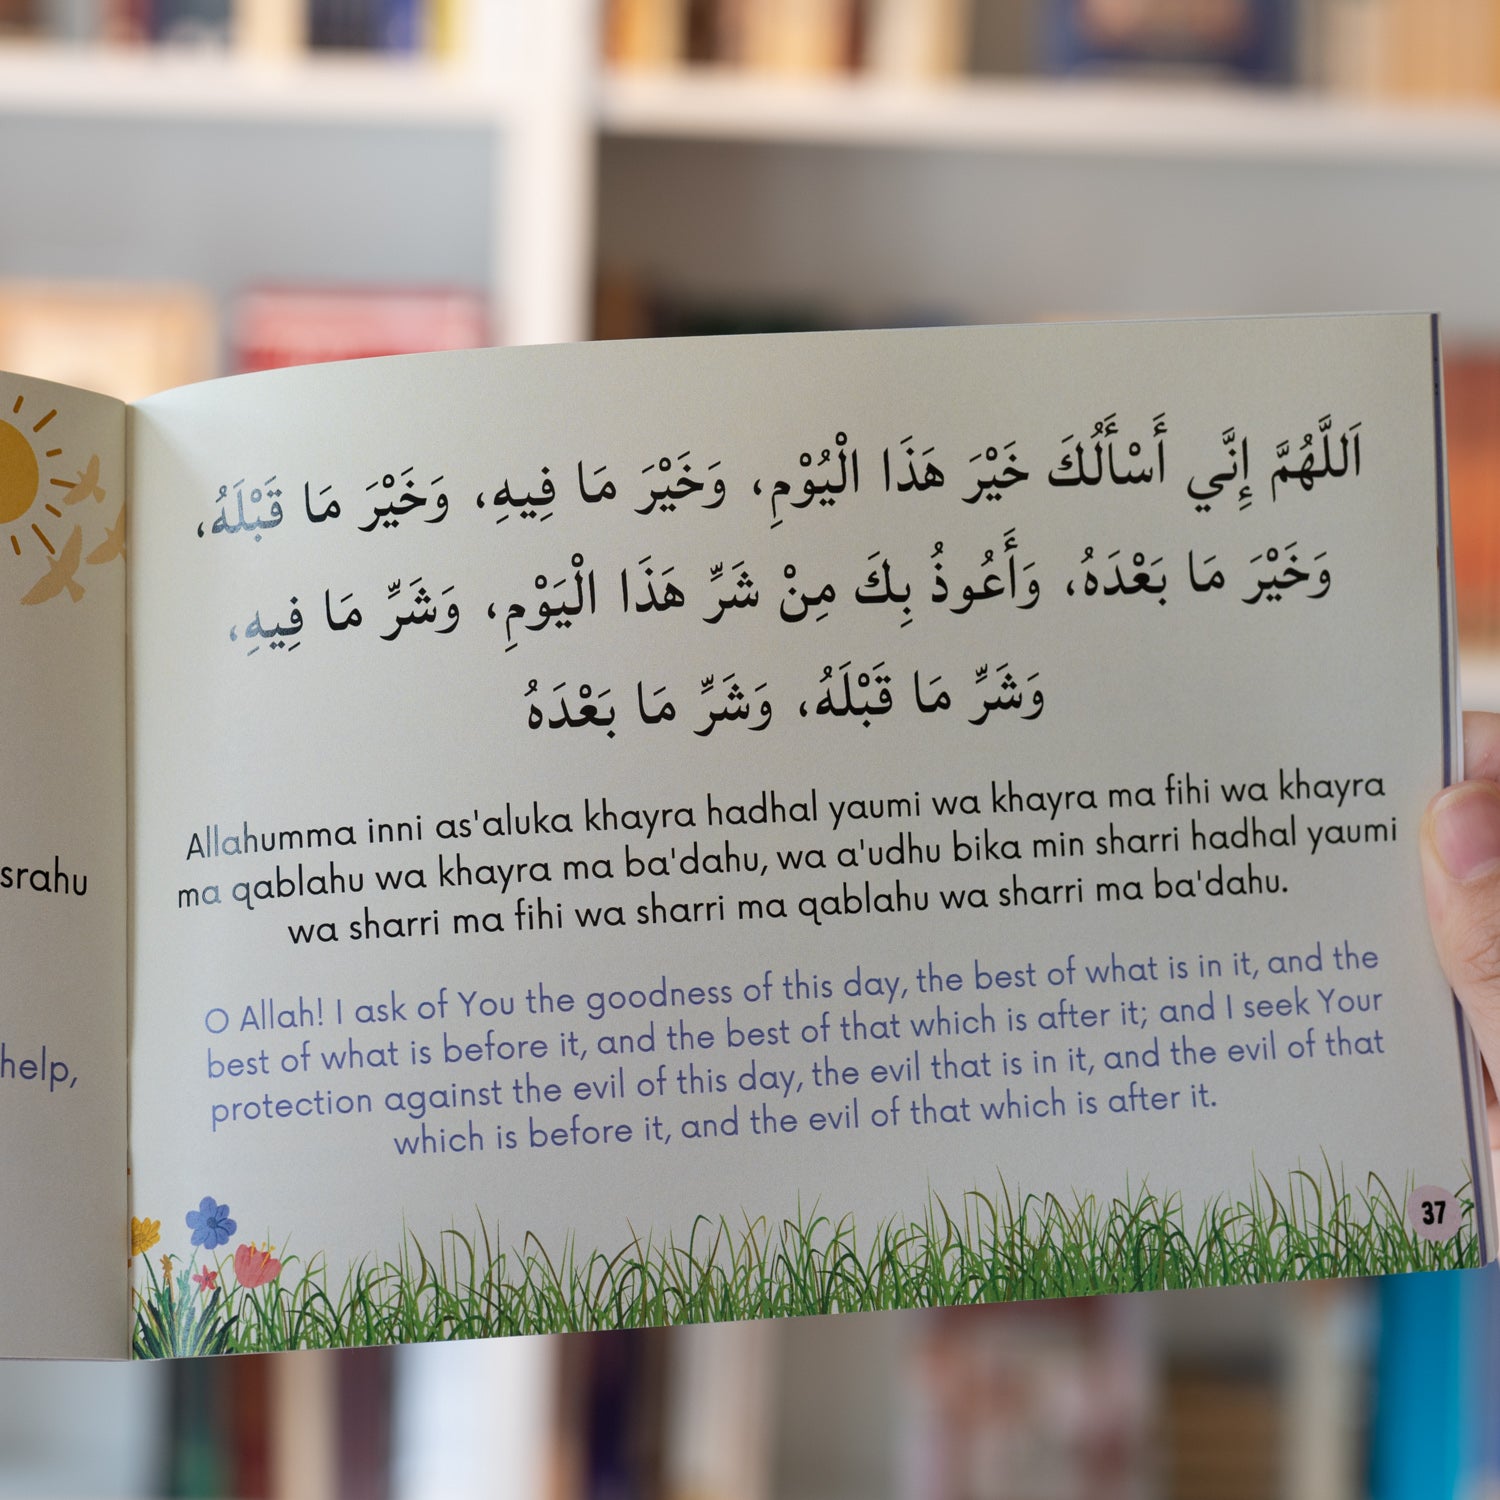 srahu
help,
اَللَّهُمَّ إِنَّي أَسْأَلُكَ خَيْرَ هَذَا الْيُوْمِ، وَخَيْرَ مَا فِيهِ، وَخَيْرَ مَا قَبْلَهُ،
وَخَيْرَ مَا بَعْدَهُ، وَأَعُوذُ بِكَ مِنْ شَرِّ هَذَا الْيَوْمِ، وَشَرِّ مَا فِيهِ،
وَشَرِّ مَا قَبْلَهُ، وَشَرِّ مَا بَعْدَهُ
Allahumma inni as'aluka khayra hadhal yaumi wa khayra ma fihi wa khayra
ma qablahu wa khayra ma ba'dahu, wa a'udhu bika min sharri hadhal yaumi
wa sharri ma fihi wa sharri ma qablahu wa sharri ma ba'dahu.
O Allah! I ask of You the goodness of this day, the best of what is in it, and the
best of what is before it, and the best of that which is after it; and I seek Your
protection against the evil of this day, the evil that is in it, and the evil of that
which is before it, and the evil of that which is after it.
37